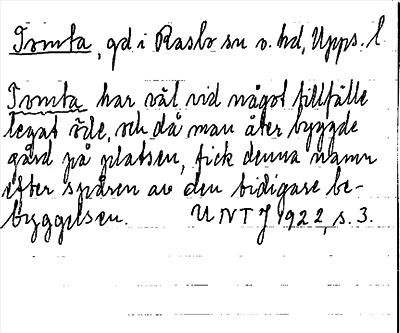 Tomta, gd i Rasbo sn o. hd, Upps. l
Tomta har väl vid något tillfälle
legat öde, och då man åter byggde
gård på platsen, fick denna namn
efter spåren av den tidigare be-
byggelsen. UNT J 1922, s. 3.